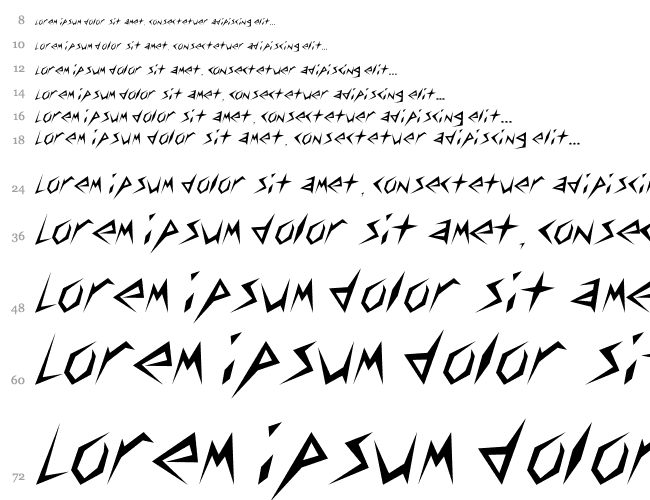 8 Lorem ipsum dolor sit amet, consectetuer adipiscing elit...
10 Lorem ipsum dolor sit amet, consectetuer adipiscing elit...
12 Lorem ipsum dolor sit amet, consectetuer adipiscing elit...
14 Lorem ipsum dolor sit amet, consectetuer adipiscing elit...
16 Lorem ipsum dolor sit amet, consectetuer adipiscing elit...
18 Lorem ipsum dolor sit amet, consectetuer adipiscing elit...
24 Lorem ipsum dolor sit amet, consectetuer adipisci
36 Lorem ipsum dolor sit amet, consec
48 Lorem ipsum dolor sit ame
60 Lorem ipsum dolor sit
72 Lorem ipsum dolor